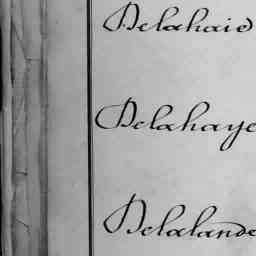 Delahaie
Delahaye
Delalande